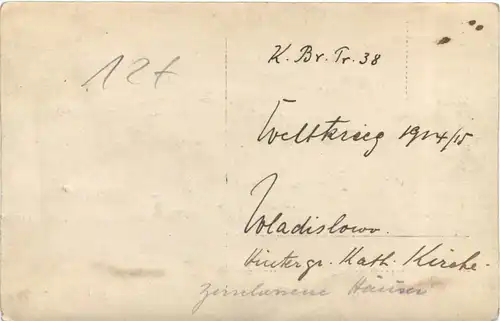 12t
K. Br. Tr. 38
Weltkrieg 1914/15
Wladislowo.
Hintergr. Kath. Kirche.
Zerschossene Häuser